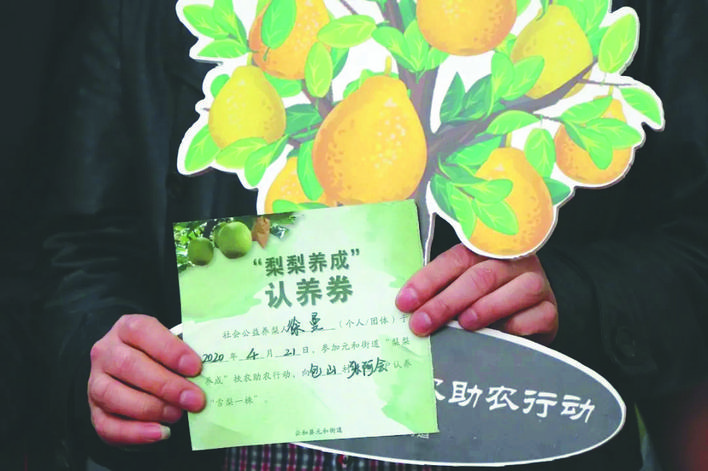 “梨梨养成”
认养券
社会公益养梨人徐曼(个人/团体)于
2020年4月21日，参加元和街道“梨梨
养成”扶农助农行动，向包山村张阿会认养
“雪梨一株”。
云和县元和街道
农助农行动